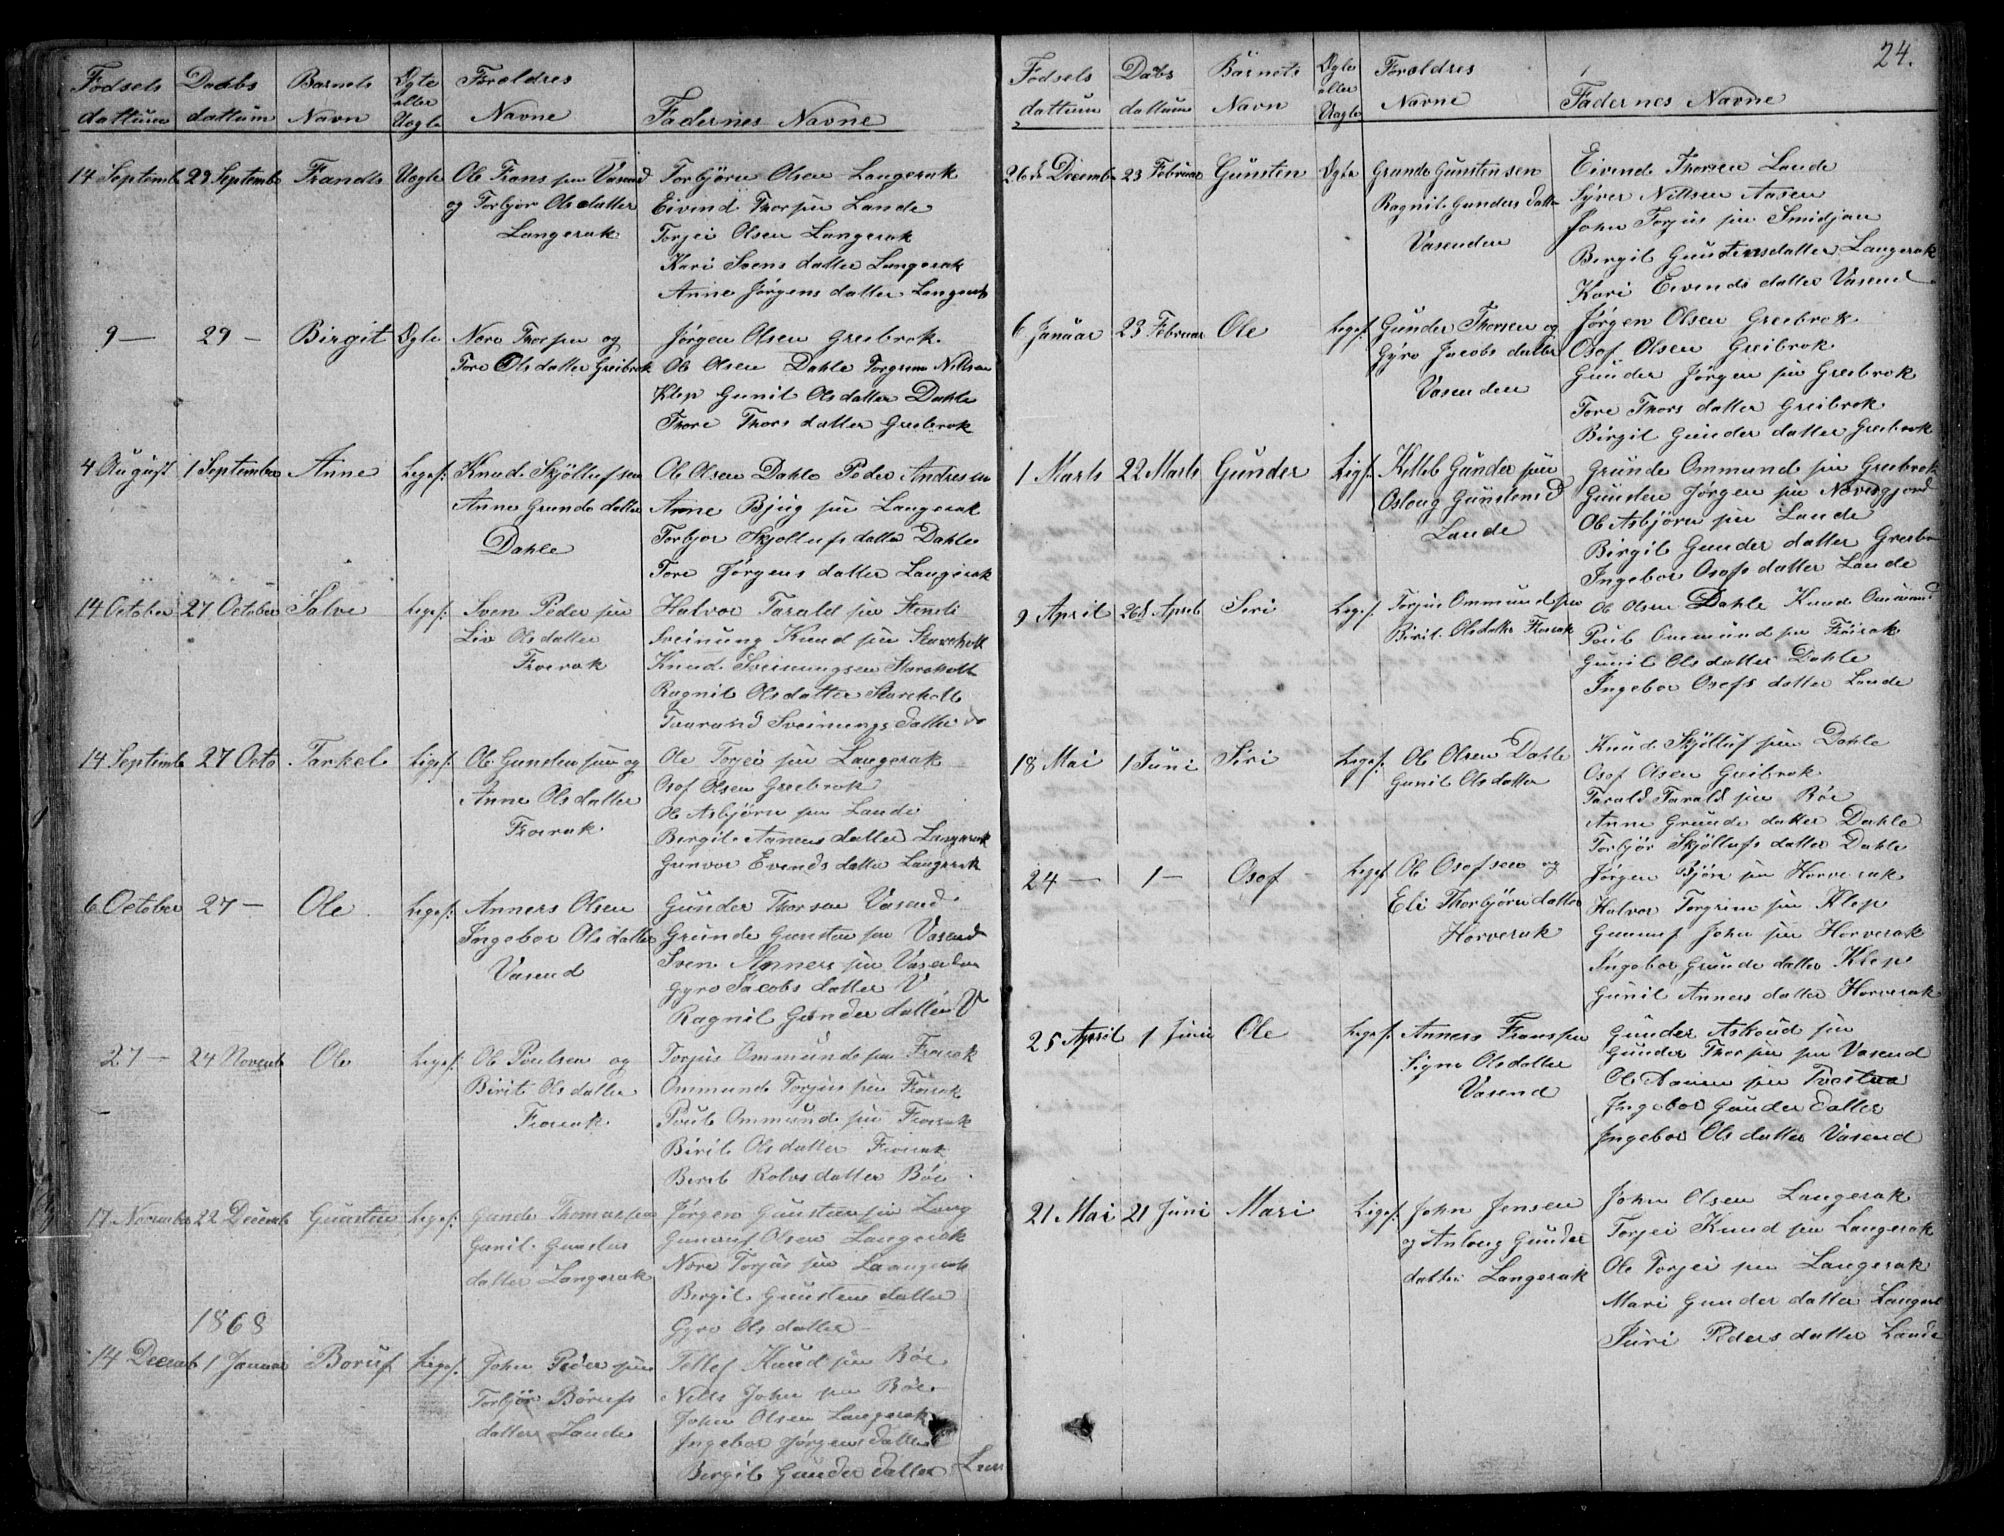 24.
Fødsels dattum
Daabs dattum
Barnets Navn
Ægte eller Uægte
Forældres Navne
Fadernes Navne
14 Septemb 29 Septemb Frandts Uægte
Ole Frans sen Vasend
og Torbjør Olsdatter
Langerak
Torbjørn Olsen Langerak
Eivend Thorsen Lande
Torjei Olsen Langerak
Kari Svens datter Langerak
Anne Jørgens datter Langerak
9 — 29 — Birgit Ægte
Nere Thorsen og
Tore Olsdatter Greibrok
Jørgen Olsen Greibrok
Ole Olsen Dahle Torgrim Nillsen
Klep Gunil Olsdatter Dahle
Thore Thors datter Greibrok
4 August 1 September Anne Legef:
Knud Skjøllufsen
Anne Grunde datter
Dahle
Ole Olsen Dahle Peder Andresen
Arne Bjug sen Langerak
Torbjor Skjollufs datter Dahle
Tore Jørgens datter Langerak
14 October 27 October Salve Legef:
Sven Peder sen
Liv Olsdatter
Froirak
Halvor Tarald sen
Sveinung Knud sen Stareholt
Knud Sveinungsen Stareholt
Ragnil Olsdatter Stareholt
Taarand Sveinungs datter do
14 Septemb 27 Octo Tarkel Legef:
Ole Gunden sen og
Anne Olsdatter
Froirak
Ole Torjei sen Langerak
Osof Olsen Greibrok
Ole Asbjørn sen Lande
Birgit Annens datter Langerak
Gunvor Evends datter Langerak
6 October 27 — Ole Legef:
Anners Olsen
Ingebor Olsdatter
Vasend
Gunder Thorsen Vasend
Grunde Gunsten sen Vasend
Sven Anners sen Vasenden
Gyro Jacobs datter V
Ragnil Gunder datter V
27 — 24 Novemb Ole Legef:
Ole Poulsen og
Birit Olsdatter
Froirak
Torjus Ommund sen Froirak
Ommund Torjus sen Froirak
Poul Ommund sen Froirak
Birit Olsdatter Froirak
Berit Rolvs datter Bøe
17 November 22 Decemb Gunsten Legef:
Gunde Thomassen
Gunil Gunstens
datter Langerak
Jørgen Gunsten sen Lang
Gunnuf Olsen Langerak
Nere Torjus sen Langerak
Bergit Gunstens datter
Gyro Olsdatter
1868
14 Decemb 1 Januar Boruf Legef:
John Peder sen
Torbjør Børufs
datter Lande
Tellef Knud sen Bøe
Nills John sen Bøe
John Olsen Langerak
Ingebor Jørgens datter
Bergit Gunder datter
Fødsels dattum
Dabs dattum
Barnets Navn
Ægte eller Uægte
Forældres Navne
Fadernes Navne
26 d Decemb 23 Februar Gunsten Ægte
Grunde Gunstensen
Ragnil Gunders datter
Vasenden
Eivende Thorsen Lande
Syver Nillsen Aasen
John Torjus sen Smidjan
Bergit Gunstensdatter Langerak
Kari Eivends datter Vasend
6 Januar 23 Februar Ole Legef:
Gunder Thorsen og
Gyro Jacobs datter
Vasenden
Jørgen Olsen Greibrok
Osof Olsen Greibrok
Gunder Jørgen sen Greibrok
Tore Thors datter Greibrok
Birgit Gunder datter Greibrok
1 Marts 22 Marts Gunder Legef:
Kelleb Gunder sen
Osloug Gunstens d
Lande
Grunde Ommund sen Greibrok
Gunden Jørgen sen
Ole Asbjørn sen Lande
Birgil Gunder datter Greibr
Ingebor Osofs datter Lande
9 April 26 d April Siri Legef:
Torjus Ommund sen
Birit Olsdatter Froirak
Ole Olsen Dahle Knud Omund
Poul Ommund sen Froirak
Gunil Olsdatter Dahle
Ingebor Osofs datter Lande
18 Mai 1 Juni Siri Legef:
Ole Olsen Dahle
Gunil Olsdatter
Knud Skjølluf sen Dahle
Osof Olsen Greibrok
Tarald Tarald sen Bøe
Anne Grunde datter Dahle
Torbjør Skjøllufs datter Dahle
24 — 1 — Osof Legef:
Ole Osofsen og
Eli Thorbjørn datter
Horverak
Jørgen Bjørn sen Horverak
Halvor Torgrim sen Klep
Gunnuf John sen Horverak
Ingebor Grunde datter Klep
Gunil Anners datter Horverak
25 April 1 Juni Ole Legef:
Anners Fransen
Signe Olsdatter
Vasend
Gunder Askoud sen
Gunder Thorsen sen Vasend
Ole Aanen sen
Ingebor Gunder datter
Ingebor Ols datter Vasend
21 Mai 21 Juni Mari Legef:
John Jensen
og Anloug Gunder
datter Langerak
John Olsen Langerak
Torjei Knud sen Langerak
Ole Torjei sen Langerak
Mari Gunder datter Langerak
Juri Peders datter Lande